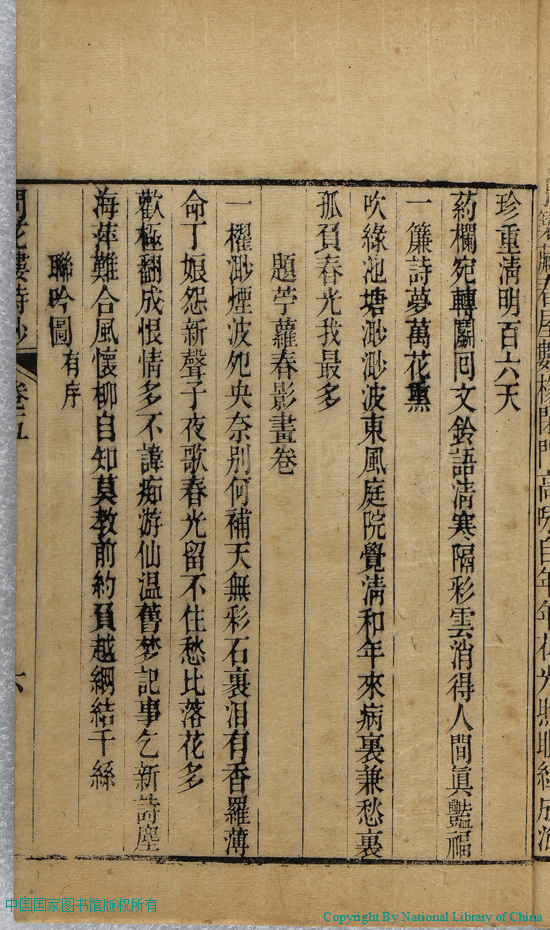 藏春屋數椽閉門高臥自年年花光照眼成海
珍重清明百六天
葯欄宛轉鬭回文鈴語清寒隔彩雲消得人間眞豔福
一簾詩夢萬花熏
吹綠池塘渺渺波東風庭院覺清和年來病裏兼愁裏
孤負春光我最多
題苧蘿春影畫卷
一櫂渺煙波夗央奈別何補天無彩石裏淚有香羅薄
命丁娘怨新聲子夜歌春光留不住愁比落花多
歡極翻成恨情多不諱痴游仙温舊梦記事乞新詩塵
海萍難合風懷柳自知莫教前約負越網結千絲
聯吟圖有序
問花樓詩鈔 卷 六
中国国家图书馆版权所有
Copyright By National Library of China